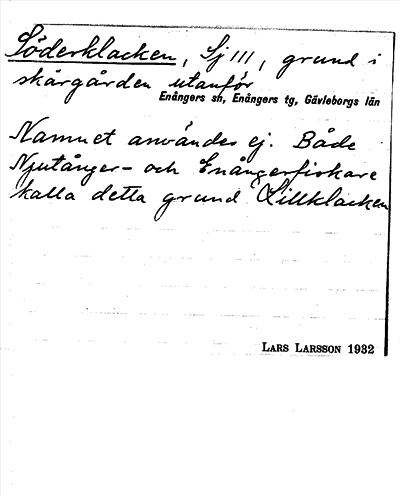 Söderklacken, Sj III, grund i
skärgården utanför
Enångers sn, Enångers tg, Gävleborgs län
Namnet användes ej. Både
Njutånger- och Enångerfiskare
kalla detta grund Lillklacken
LARS LARSSON 1932